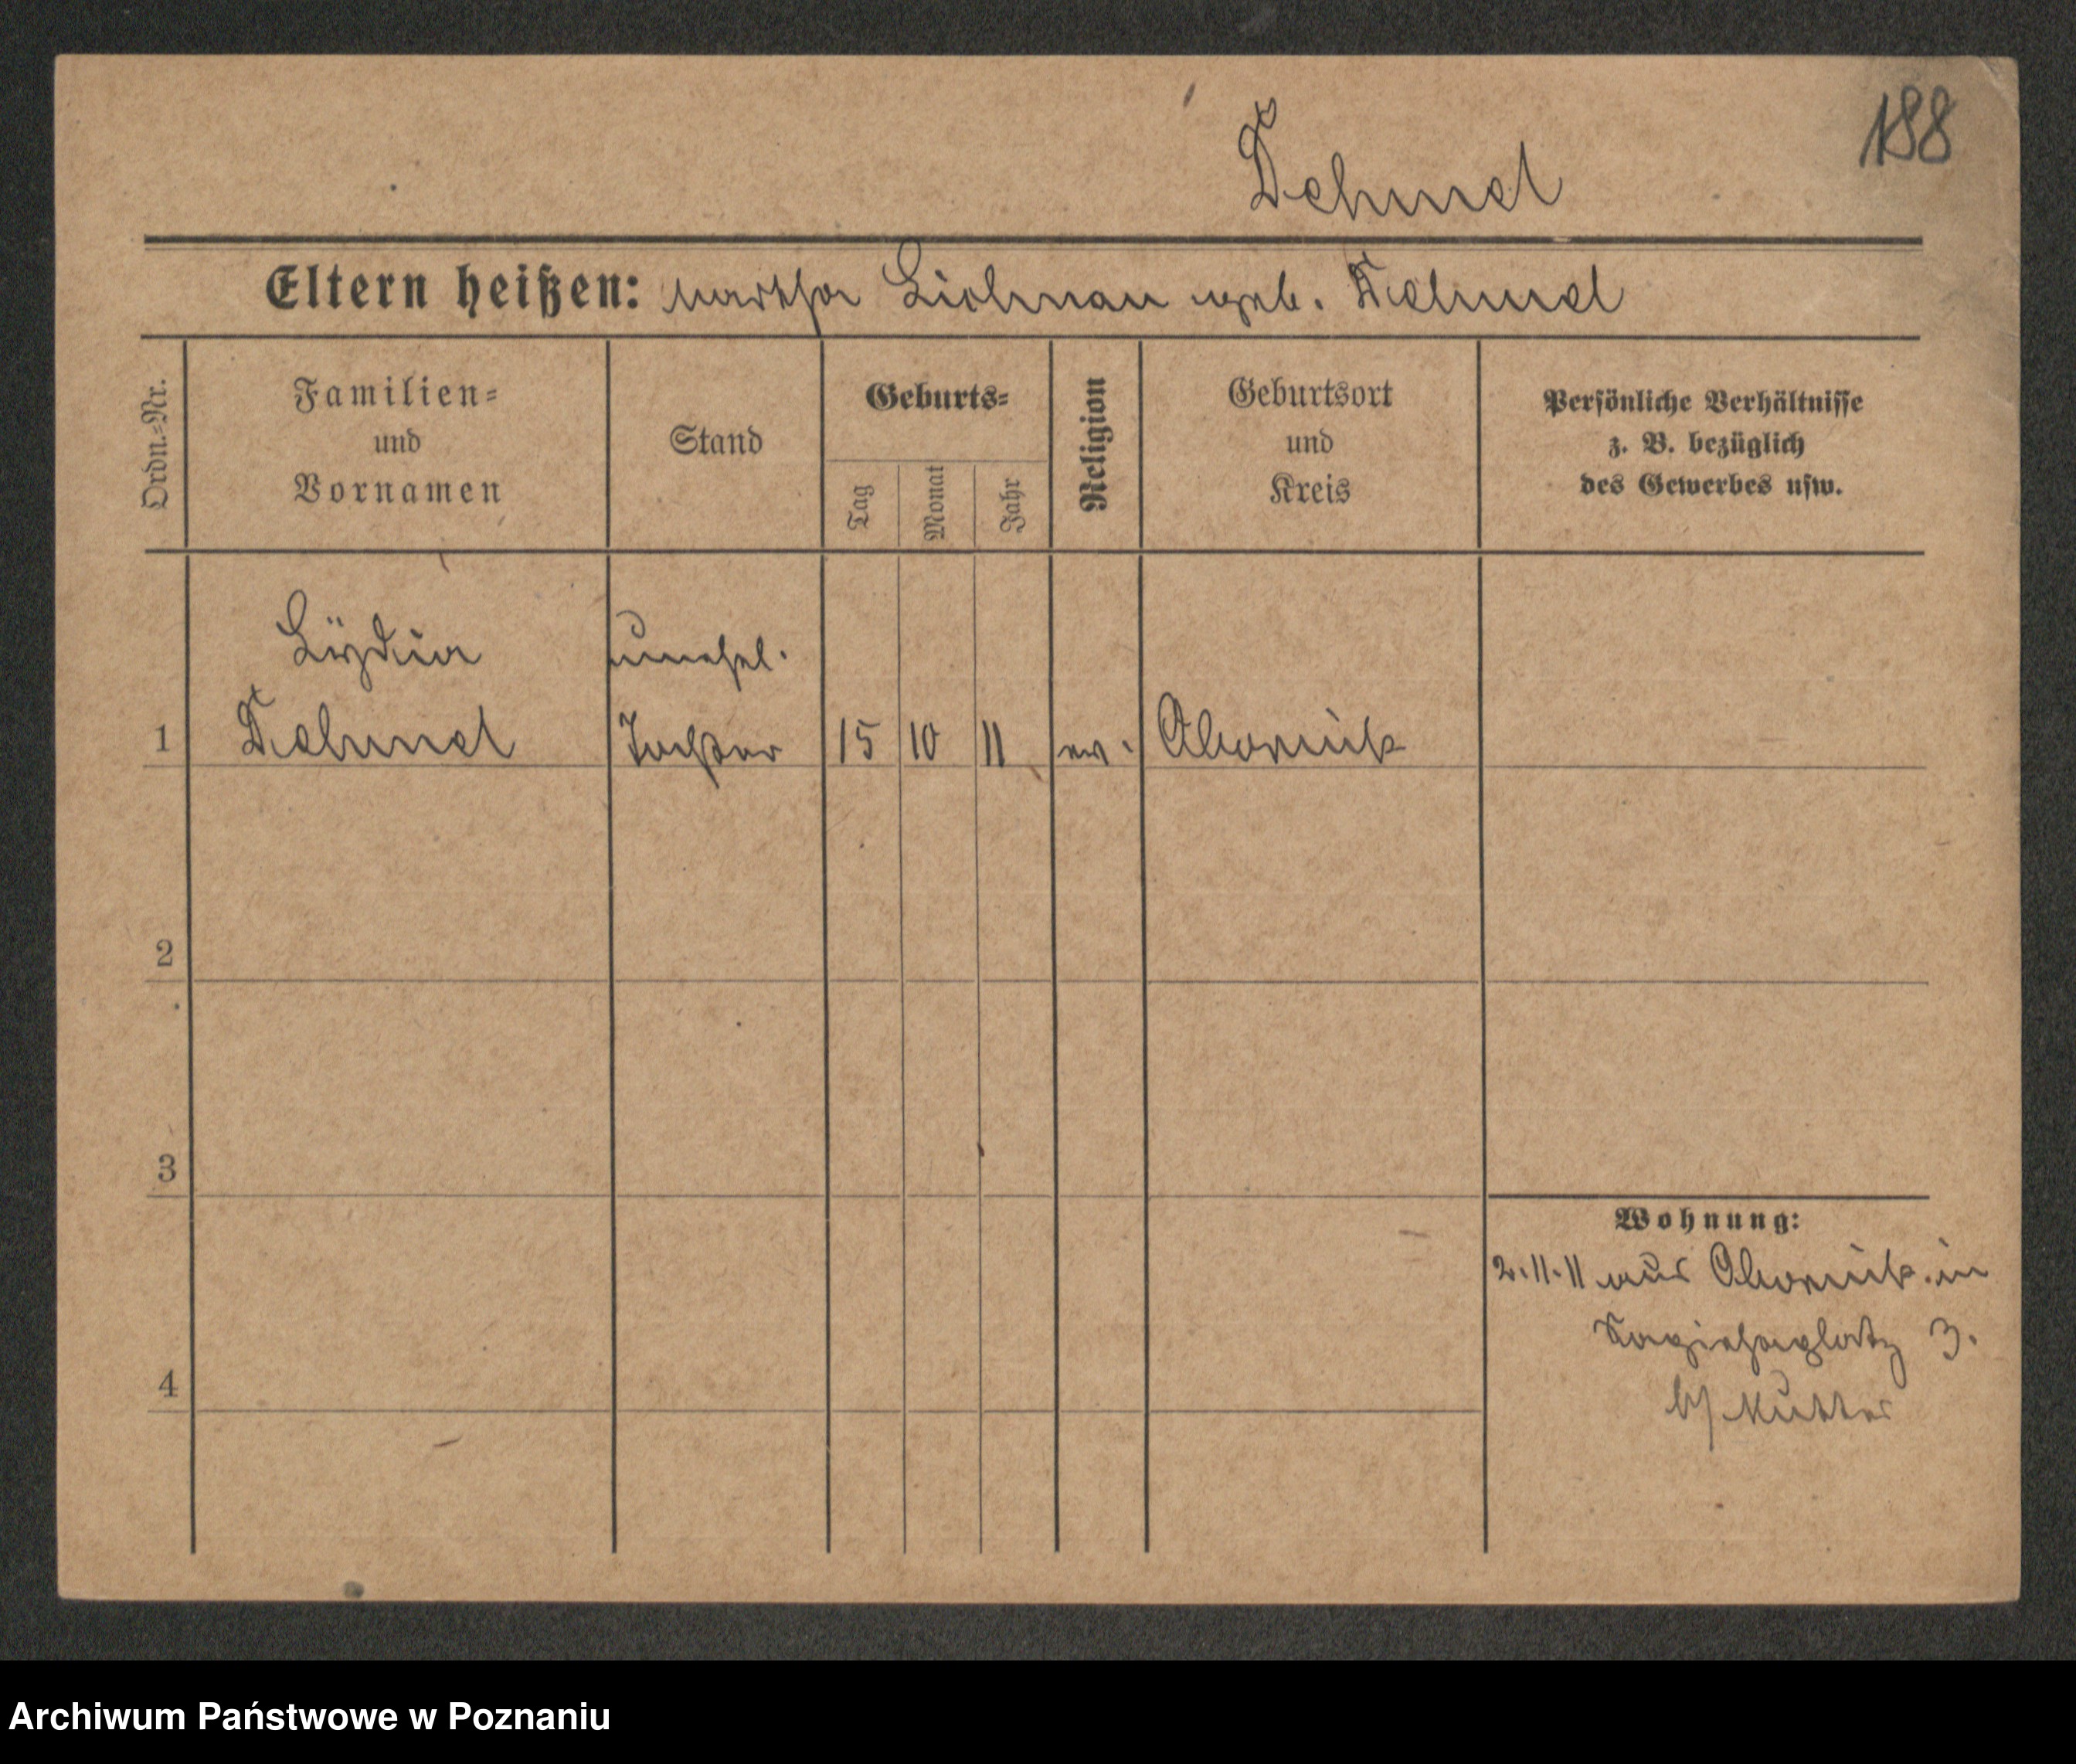 188
Dehmel
Eltern heißen: Martha geb. Dehmel
Ordn.=Nr.
Familien=
und
Vornamen
Stand
Geburts=
Tag
Monat
Jahr
Religion
Geburtsort
und
Kreis
Persönliche Verhältnisse
z. B. bezüglich
des Gewerbes usw.
Lydia
unehel.
1 Dehmel Tochter 15 10 11 ev. Obornik
2
3
4
Wohnung:
2.11.11 aus Obornik in
Sapiehaplatz 3.
b/ Mutter
Archiwum Państwowe w Poznaniu